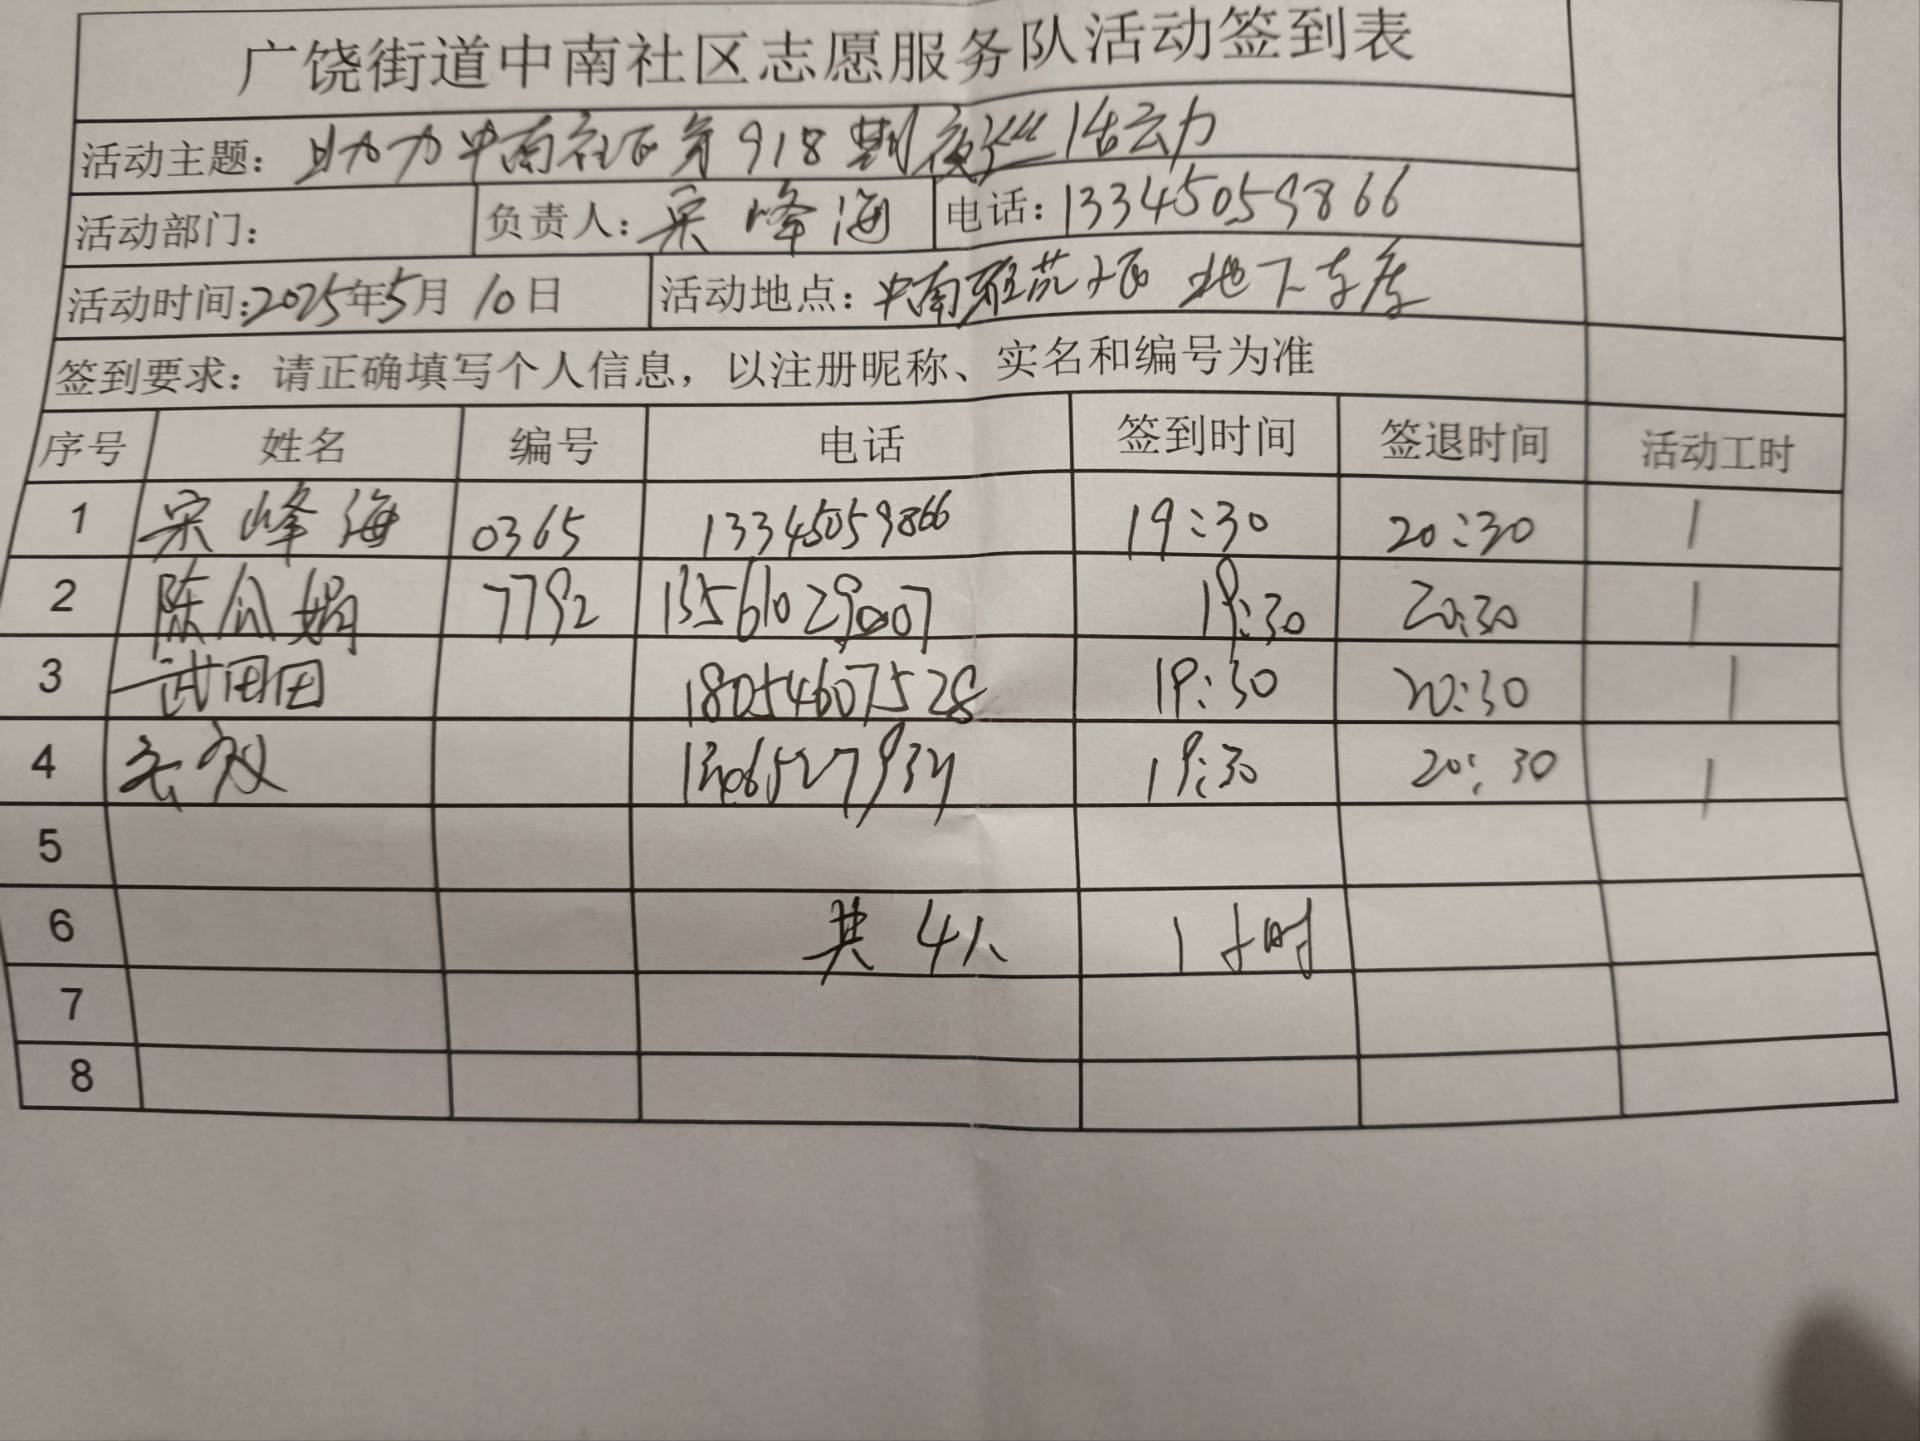 广饶街道中南社区志愿服务队活动签到表
活动主题：助力中南社区第918期夜巡活动
活动部门： 负责人：宋峰海 电话：13345059866
活动时间：2025年5月10日 活动地点：中南雅苑小区 地下车库
签到要求：请正确填写个人信息，以注册昵称、实名和编号为准
序号 姓名 编号 电话 签到时间 签退时间 活动工时
1 宋峰海 0365 13345059866 19:30 20:30 1
2 陈 娟 7792 13561029007 19:30 20:30 1
3 武田田 18054607528 19:30 20:30 1
4 19:30 20:30 1
5
6 共4人 1小时
7
8